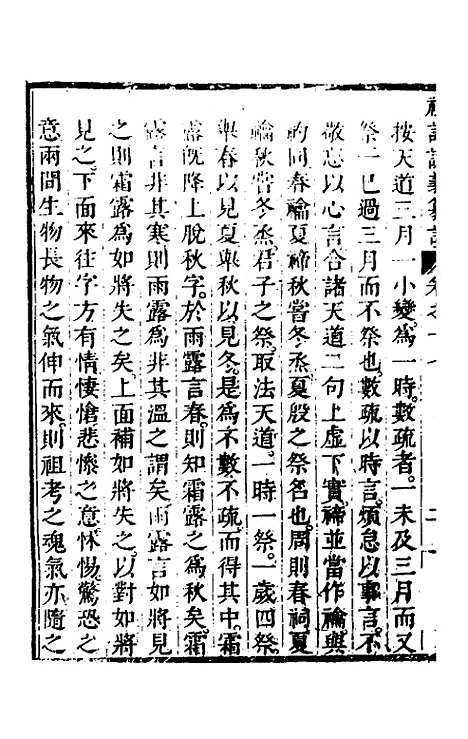 按天道三月一小變爲一時數疏者一未及三月而又
祭一已過三月而不祭也數疏以時言煩怠以事言不
敬忘以心言合諸天道二句上虛下實禘並當作禴與
礿同春禴夏禘秋嘗冬烝夏殷之祭名也周則春祠夏
禴秋嘗冬烝君子之祭取法天道一時一祭一歲四祭
舉春以見夏舉秋以見冬是爲不數不疏而得其中霜
露旣降上脫秋字於雨露言春則知霜露之爲秋矣霜
露言非其寒則雨露爲非其溫之謂矣雨露言如將見
之則霜露爲如將失之矣上面補如將失之以對如將
見之下面來往字方有情悽愴悲慘之意怵惕驚恐之
意兩間生物長物之氣伸而來則祖考之魂氣亦隨之